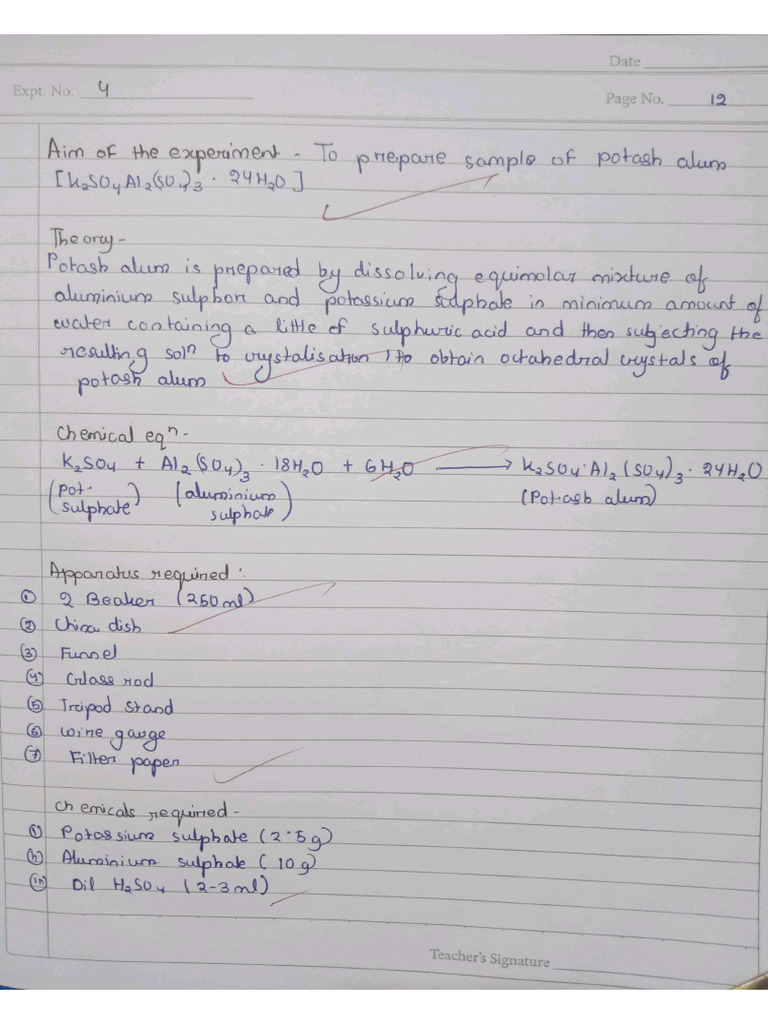 Date
Expt. No. 4
Page No. 12
Aim of the experiment - To prepare sample of potash alum
[K₂SO₄Al₂(SO₄)₃ · 24H₂O]
Theory -
Potash alum is prepared by dissolving equimolar mixture of
aluminium sulphon and potassium sulphate in minimum amount of
water containing a little of sulphuric acid and then subjecting the
resulting solⁿ to crystalisation to obtain octahedral crystals of
potash alum
Chemical eqⁿ -
K₂SO₄ + Al₂(SO₄)₃ · 18H₂O + 6H₂O ⟶ K₂SO₄·Al₂(SO₄)₃ · 24H₂O
(Pot. sulphate) (aluminium sulphate) (Potash alum)
Apparatus required :
① 2 Beaker (250 ml)
② China dish
③ Funnel
④ Glass rod
⑤ Tripod stand
⑥ wire gauge
⑦ Filter paper
Chemicals required -
(i) Potassium sulphate (2.5 g)
(ii) Aluminium sulphate (10 g)
(iii) Dil H₂SO₄ (2-3 ml)
Teacher's Signature